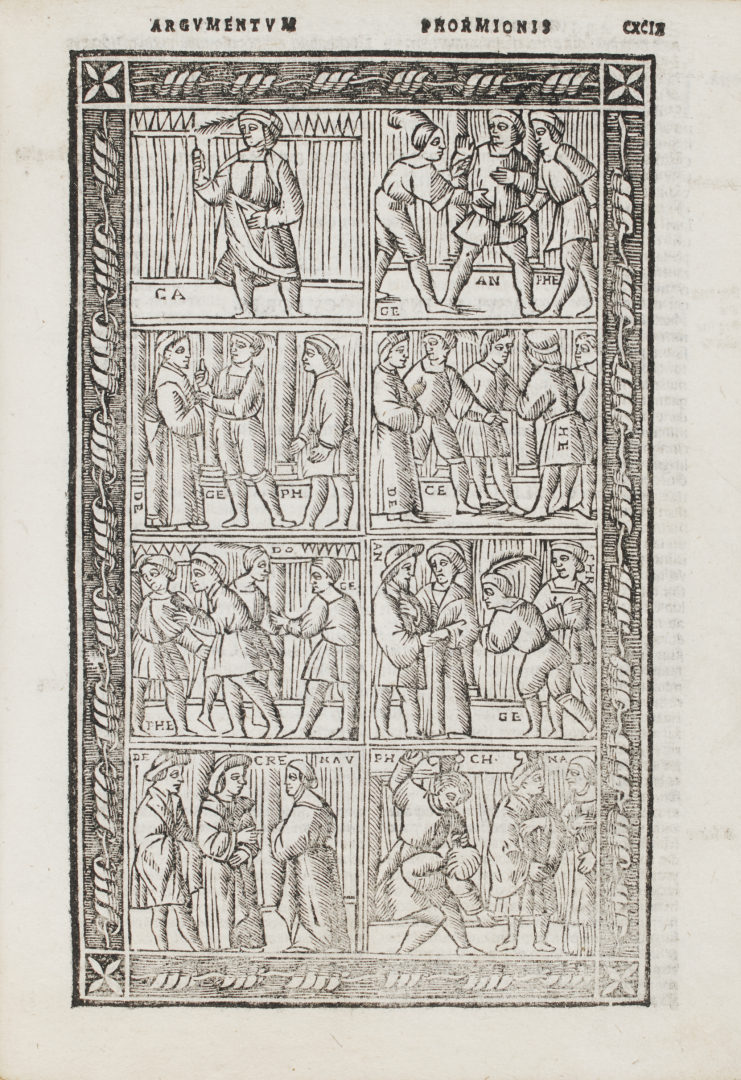 ARGVMENTVM PHORMIONIS CXCIX
CA
GE AN PHE
DE GE PH
DE GE HE
PHE DO GE
AN GE
DE CRE NAV
PH CH. NA